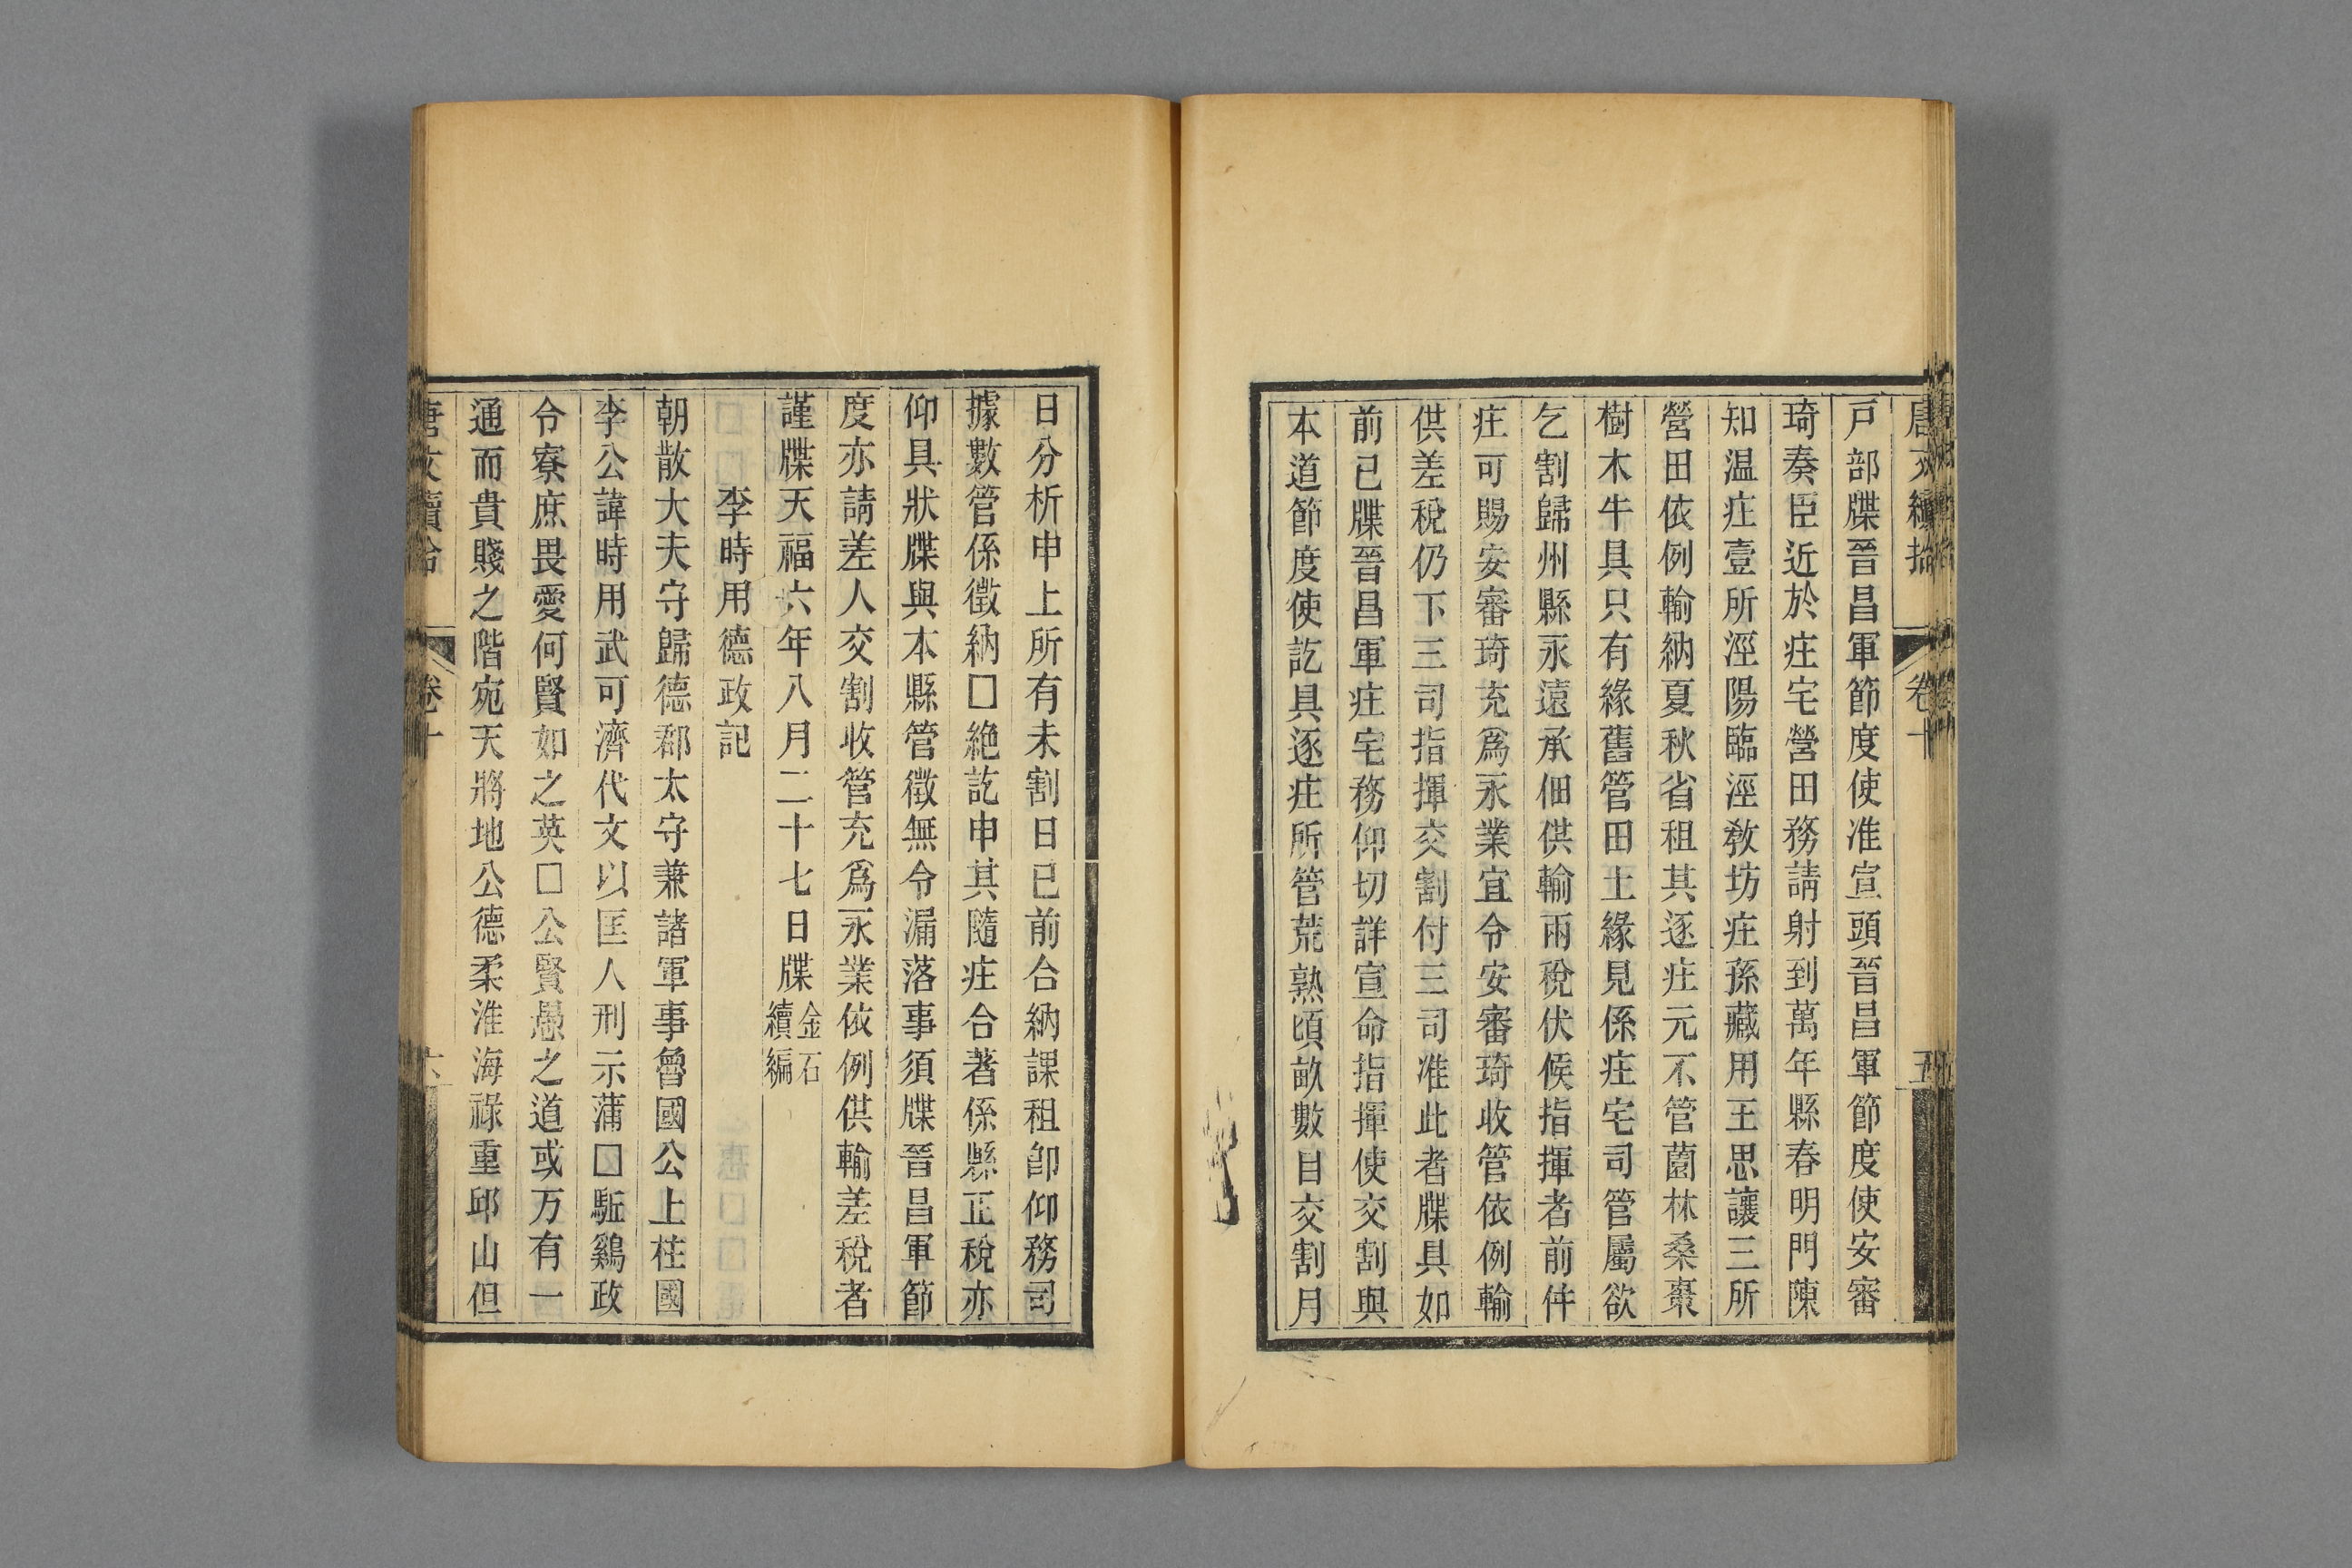 戸部牒晉昌軍節度使准宣頭晉昌軍節度使安審
琦奏臣近於庄宅營田務請射到萬年縣春明門陳
知温庄壹所涇陽臨涇教坊庄孫藏用王思讓三所
營田依例輸納夏秋省租其逐庄元不管薗林桑棗
樹木牛具只有緣舊管田土緣見係庄宅司管屬欲
乞割歸州縣永遠承佃供輸兩稅伏候指揮者前件
庄可賜安審琦充爲永業宜令安審琦收管依例輸
供差稅仍下三司指揮交割付三司准此者牒具如
前已牒晉昌軍庄宅務仰切詳宣命指揮使交割與
本道節度使訖具逐庄所管荒熟頃畝數目交割月
日分析申上所有未割日已前合納課租卽仰務司
據數管係徵納□絶訖申其隨庄合著係縣正稅亦
仰具狀牒與本縣管徵無令漏落事須牒晉昌軍節
度亦請差人交割收管充爲永業依例供輸差稅者
謹牒天福六年八月二十七日牒金石續編
李時用德政記
朝散大夫守歸德郡太守兼諸軍事魯國公上柱國
李公諱時用武可濟代文以匡人刑示蒲□駈鷄政
令寮庶畏愛何賢如之英□公賢愚之道或万有一
通而貴賤之階宛天將地公德柔淮海祿重邱山但